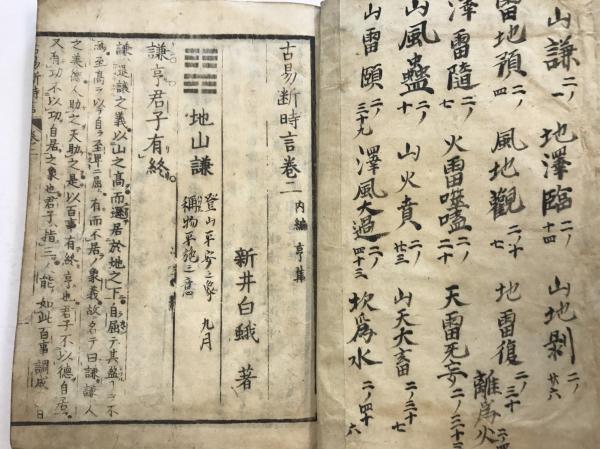 山謙 二ノ一 地澤臨 二ノ十四 山地剝 二ノ廿六
雷地預 二ノ四 風地觀 地雷復 二ノ三十
離爲火
澤雷隨 二ノ七 火雷噬嗑 二ノ二十 天雷旡妄 二ノ三十三
山風蠱 二ノ十 山火賁 二ノ廿三 山天大畜 二ノ三十七
山雷頤 二ノ三十九 澤風大過 二ノ四十三 坎爲水 二ノ四十六
古易断時言巻二 内編 亨集
新井白蛾 著
地山謙 登山平安之象 九月
稱物平施之意
謙亨君子有終
謙ハ退謙之義以山之高而遜居於地之下自屈テ其盈ニ不
爲至高ヲ以テ自ラ至卑ニ屈有而不居ノ象義故名テ曰謙謙人
之美德人助之天助之是以百事有終亨也君子不以德自居
又有功不以功自居之象也君子指三能如此百事調成曰
古易断時言 巻之二